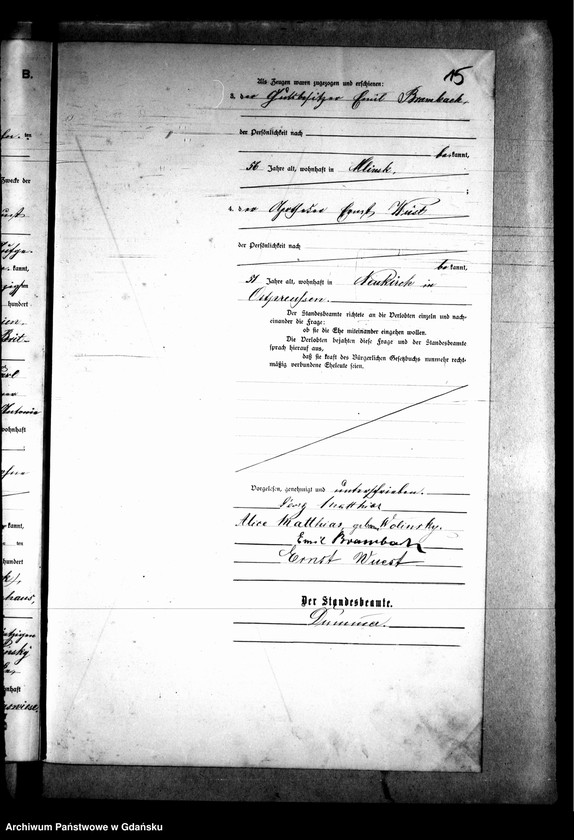 B.
15
Als Zeugen waren zugezogen und erschienen:
3. der Gutsbesitzer Emil Brambach,
der Persönlichkeit nach
be kannt,
56 Jahre alt, wohnhaft in Mlinsk.
;
4. der Apotheker Ernst Wuest
der Persönlichkeit nach
be kannt,
51 Jahre alt, wohnhaft in Neukirch in
Ostpreussen.
Der Standesbeamte richtete an die Verlobten einzeln und nach-
einander die Frage:
ob sie die Ehe miteinander eingehen wollen.
Die Verlobten bejahten diese Frage und der Standesbeamte
sprach hierauf aus,
daß sie kraft des Bürgerlichen Gesetzbuchs nunmehr recht-
mäßig verbundene Eheleute seien.
Vorgelesen, genehmigt und unterschrieben.
Georg Matthias
Alice Matthias, geborene Wolinsky.
Emil Brambach
Ernst Wuest
Der Standesbeamte.
Archiwum Państwowe w Gdańsku